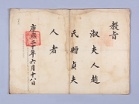 敎旨
淑夫人趙
氏贈貞夫
人者
康熙二十年六月十八日